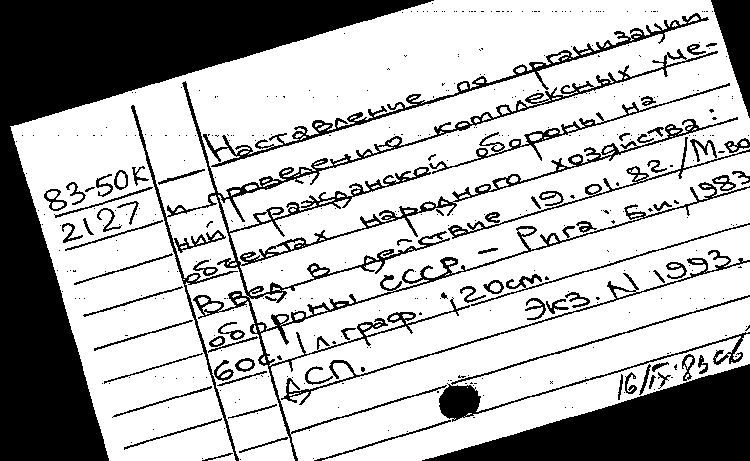 Наставление по организации
83-50К и проведению комплексных уче-
2127 ний гражданской обороны на
объектах народного хозяйства:
Введ. в действие 19.01.82./М-во
обороны СССР. – Рига: Б.и., 1983
60с., 1 л.граф.; 20см.
ДСП. Экз. N 1993.
16/IX-83